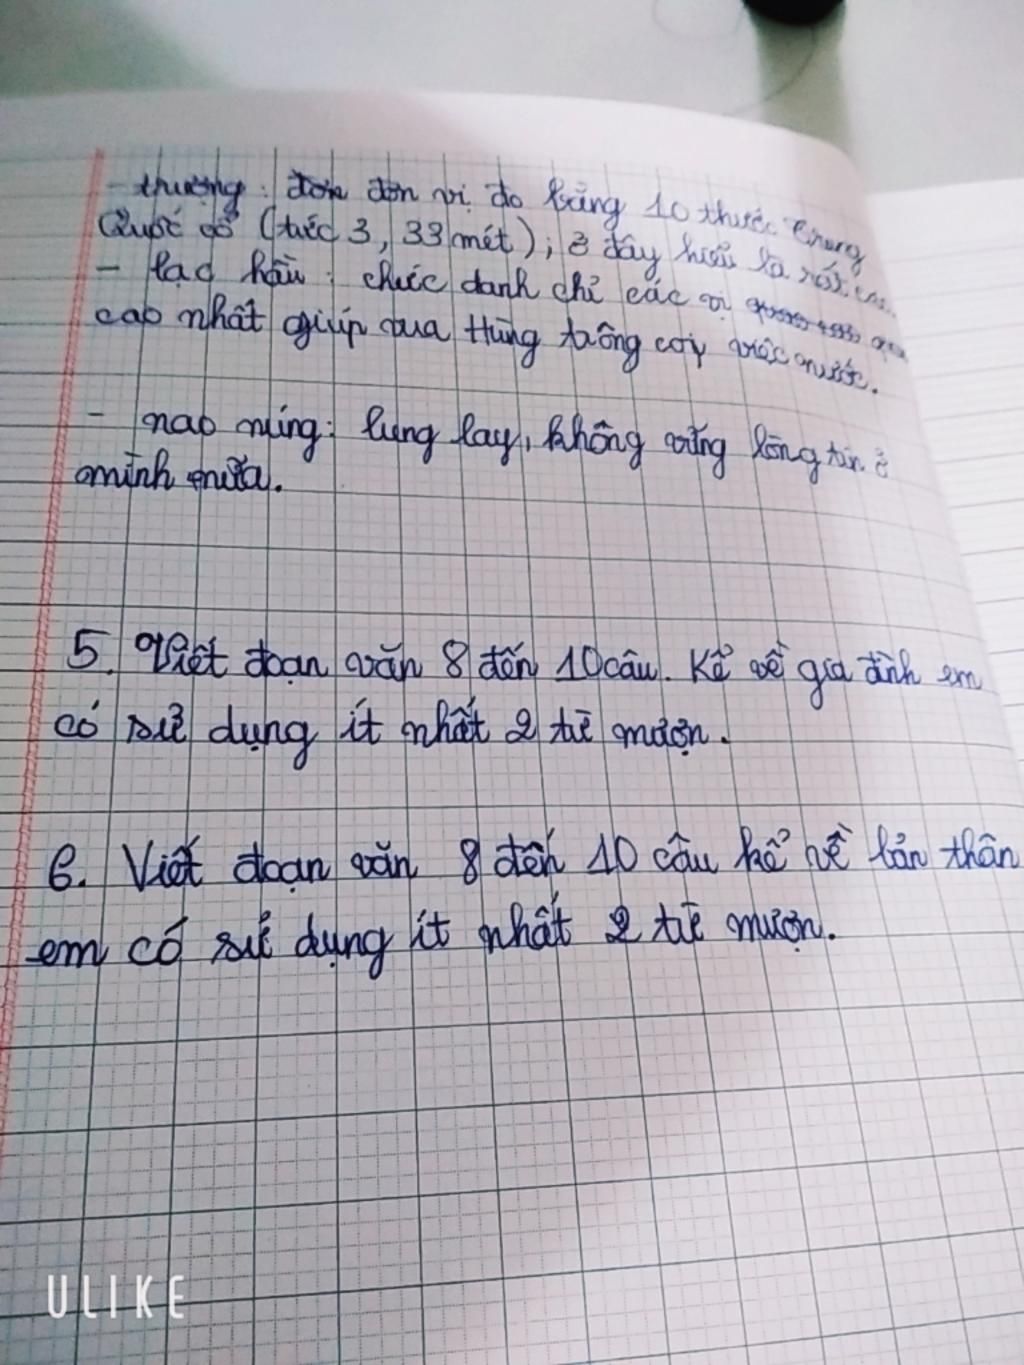 - thượng: đơn đơn vị đo bằng 10 thước Trung
Quốc cổ (tức 3,33 mét); ở đây hiểu là rất
- lạc hầu: chức danh chỉ các vị
cao nhất giúp vua Hùng trông coi việc nước.
- nao núng: lung lay, không vững lòng tin ở
mình nữa.
5. Viết đoạn văn 8 đến 10 câu. Kể về gia đình em
có sử dụng ít nhất 2 từ mượn.
6. Viết đoạn văn 8 đến 10 câu kể về bản thân
em có sử dụng ít nhất 2 từ mượn.
ULIKE